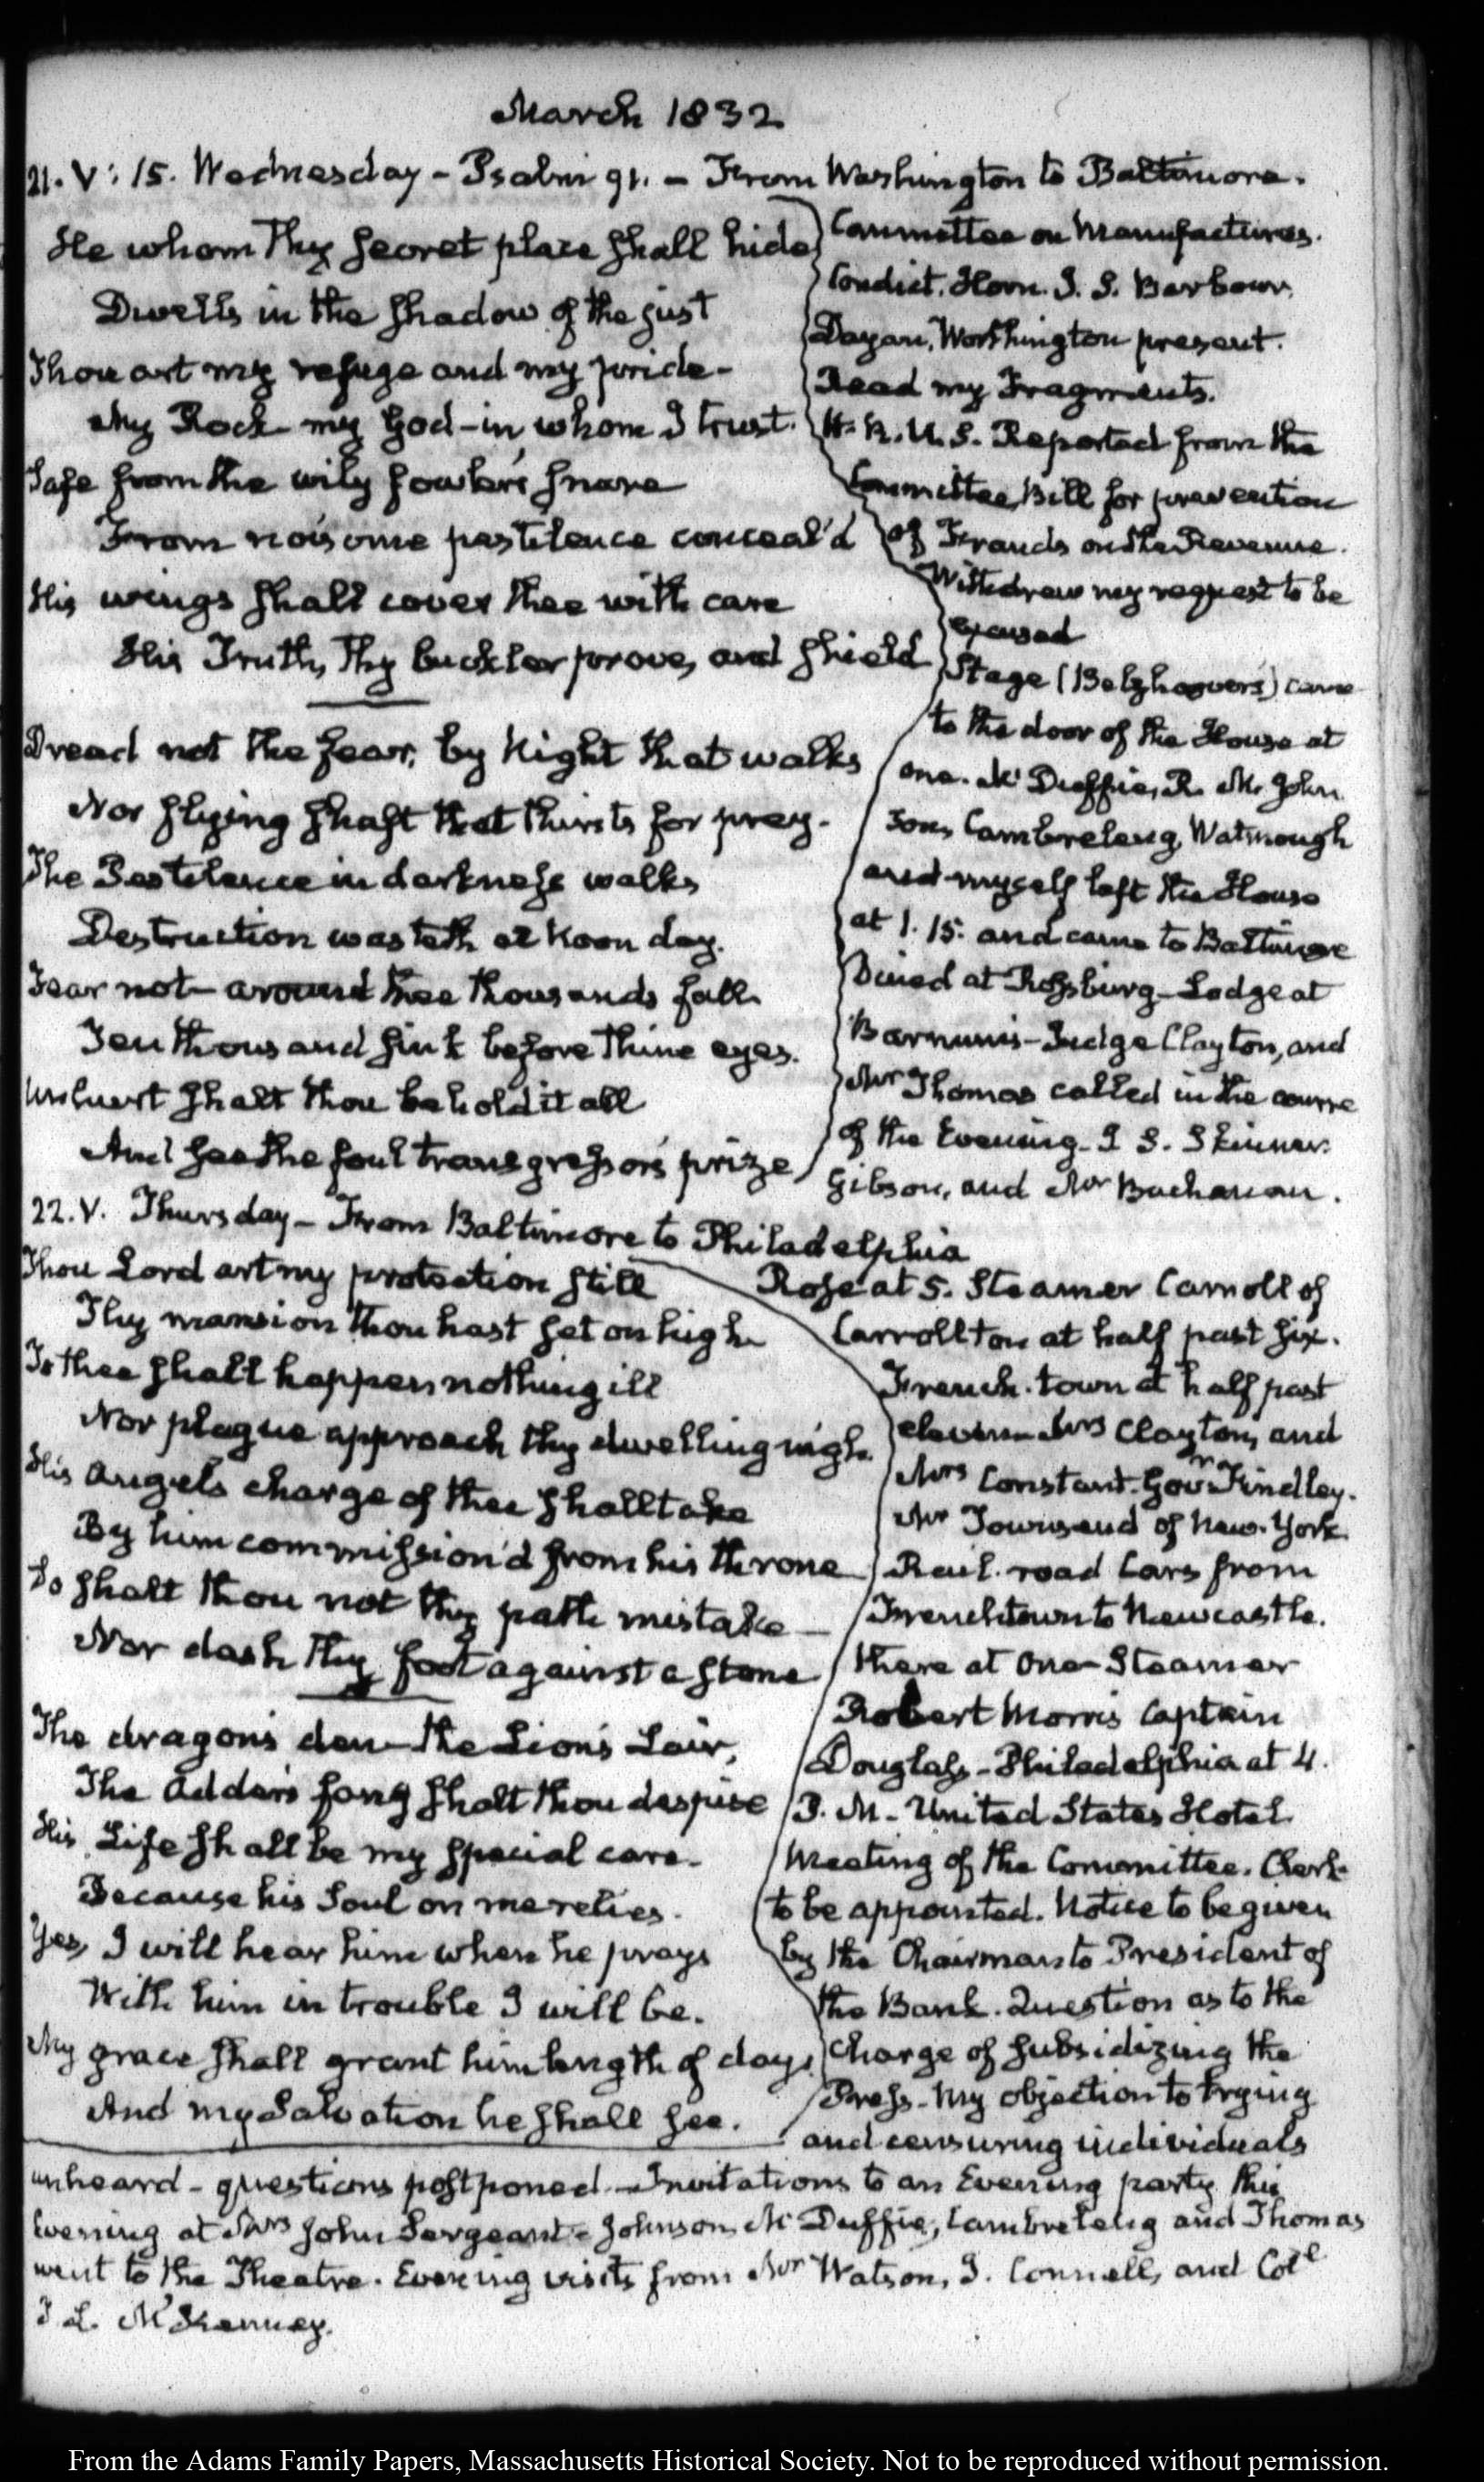 March 1832
21. V: 15. Wednesday - Psalm 91. - From Washington to Baltimore.
He whom Thy secret place shall hide
Dwells in the shadow of the just
Thou art my refuge and my pride -
My Rock my God - in whom I trust.
Safe from the wily fowler's snare
From noisome pestilence conceal'd
His wings shall cover thee with care
His Truth, Thy buckler prove, and shield
Dread not the fear, by Night that walks
Nor flying shaft that thirsts for prey.
The Pestilence in darkness walks
Destruction wasteth at Noon day.
Fear not - around thee thousands fall
Ten thousand sink before thine eyes.
Unhurt shalt thou behold it all
And see the foul transgressor's prize
Committee on Manufactures.
Condict. Horn. J. S. Barbour,
Dayan, Worthington present.
Read my Fragments.
H. R. U. S. Reported from the
Committee, Bill for prevention
of Frauds on the Revenue.
Withdrew my request to be
excused
Stage (Beltzhoover's) came
to the door of the House at
one. McDuffie, R. M. John
son, Cambreleng, Watmough
and myself left the House
at 1. 15. and came to Baltimore
Dined at Rossburg - Lodge at
Barnum's - Judge Clayton, and
Mr Thomas called in the course
of the Evening - J. S. Skinner.
Gibson, and Mr Buchanan.
22. V. Thursday - From Baltimore to Philadelphia
Thou Lord art my protection still
Thy mansion thou hast set on high
To thee shall happen nothing ill
Nor plague approach thy dwelling nigh.
His angels charge of thee shall take
By him commission'd from his throne
So shalt thou not thy path mistake -
Nor dash thy foot against a stone
The dragon's den - the Lion's Lair,
The Adder's fang shalt thou despise
His Life shall be my special care -
Because his Soul on me relies.
Yes, I will hear him when he prays
With him in trouble I will be.
My grace shall grant him length of days
And my Salvation he shall see.
Rose at 5. Steamer Carroll of
Carrollton at half past six.
French-town at half past
eleven - Mrs Clayton, and
Mrs Constant. Govr Findley.
Mr Townsend of New-York
Rail-road Cars from
Frenchtown to Newcastle.
there at One - Steamer
Robert Morris Captain
Douglass - Philadelphia at 4.
P. M. - United States Hotel
Meeting of the Committee. Clerk
to be appointed. Notice to be given
by the Chairman to President of
the Bank. Question as to the
charge of subsidizing the
Press - My objection to trying
and censuring individuals
unheard - questions postponed. - Invitations to an Evening party this
Evening at Mrs John Sergeant's - Johnson, McDuffie, Cambreleng and Thomas
went to the Theatre. Evening visits from Mr Watson, J. Connell, and Coll
T L. McKenney.
From the Adams Family Papers, Massachusetts Historical Society. Not to be reproduced without permission.